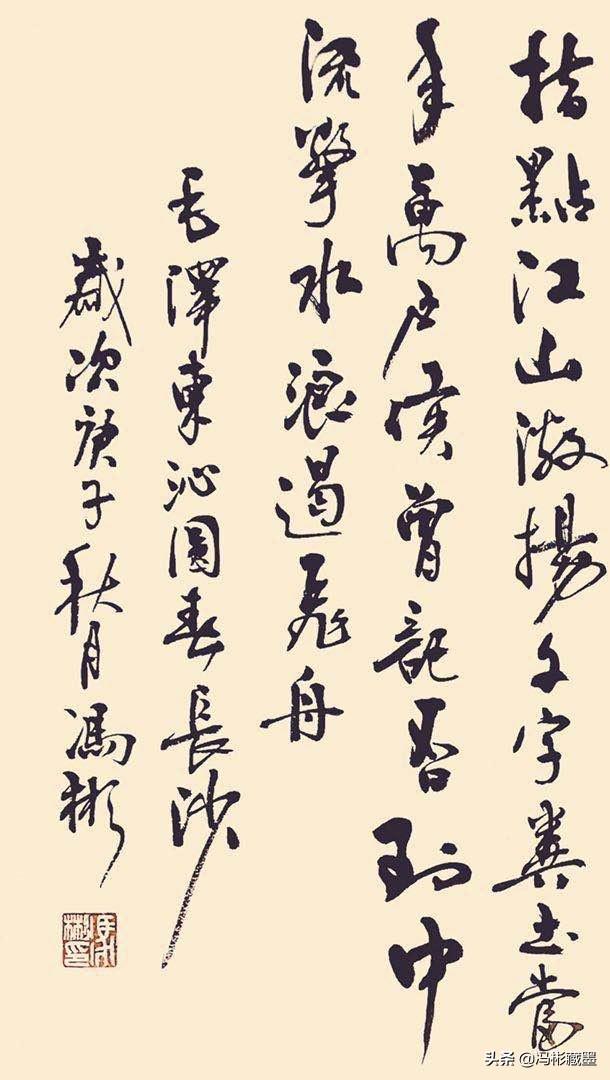 指點江山激揚文字糞土當
年萬户侯曾記否到中
流擊水浪遏飛舟
毛澤東沁園春長沙
歲次庚子秋月馮彬
馮彬印
头条 @冯彬藏墨